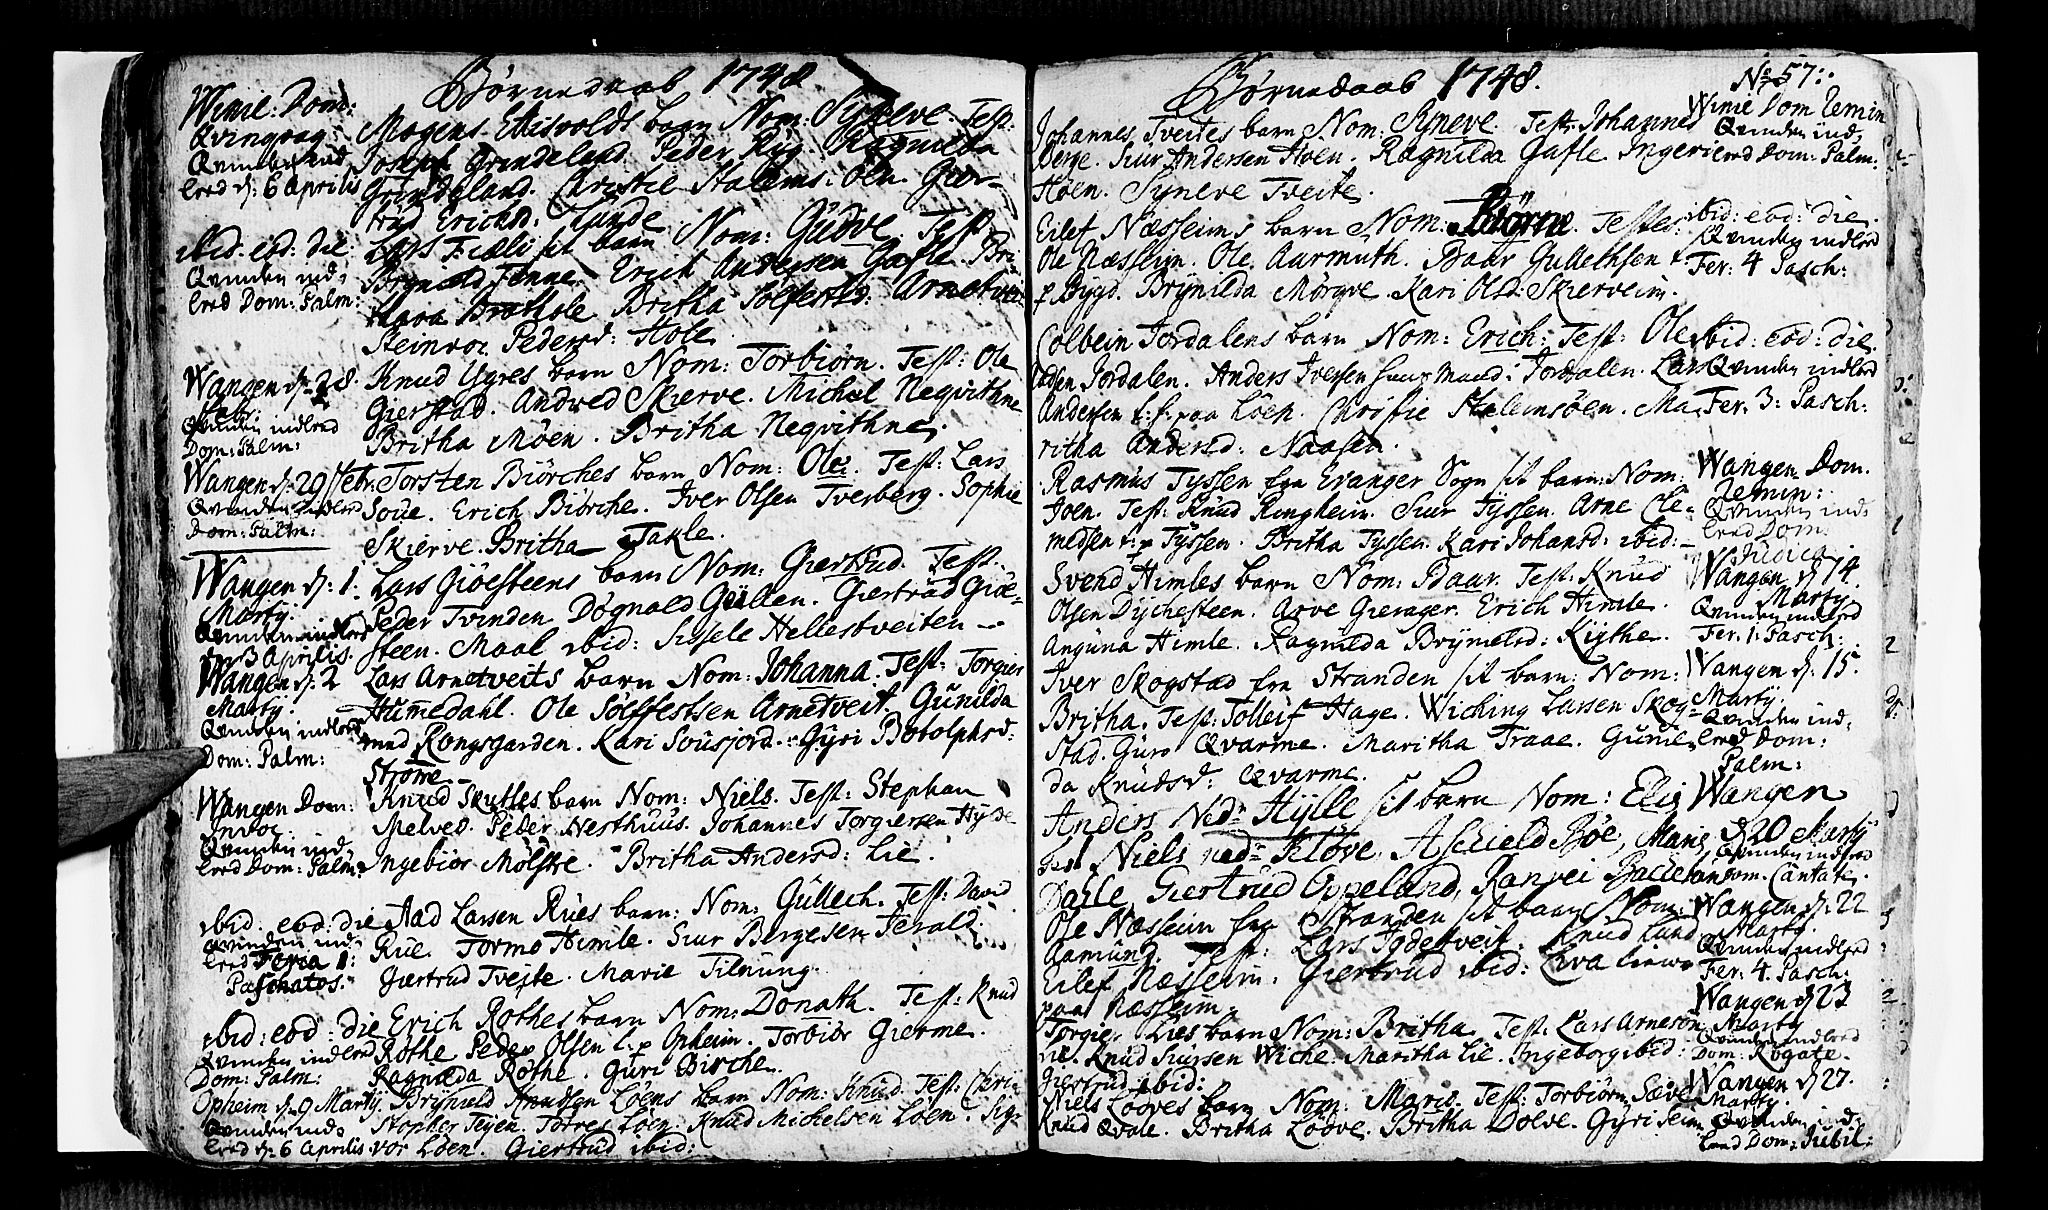 Børnedaab 1748
Winie: Dom:
Qvinqvag:
Qvinden ind
lred d: 6 Aprilis
Mogens Ettisvolds barn Nom: Syneve. Test:
Joseph Grundeland. Peder Rÿg. Ragnilda
Grundeland. Christie Stalems: Øen. Gier-
trud Erichd:
ibid: eod: die:
Qvinden ind:
lred Dom: Palm:
Lars Fiæli sit barn Nom: Gudve. Test
Erich Andersen Gafle. Bri-
Brithe Sølfestd: Arnetveit
Steinvor Pedersd: Hole.
Wangen d: 28.
Febr:
Qvinden indlred
Dom: Palm:
Knud Ygres barn Nom: Torbiørn. Test: Ole
Gierstad. Andved Skierve. Michel Neqvithne
Britha Møen. Britha Neqvithne.
Wangen d: 29 Febr.
Qvinden indlred
Dom: Palm:
Torsten Biørches barn Nom: Ole. Test: Lars
Soue. Erich Biørche. Iver Olsen Tverberg. Sophie
Skierve. Britha Takle.
Wangen d: 1.
Martÿ.
Qvinden indlred
d: 3 Aprilis.
Lars Giøesteens barn Nom: Giertrud. Test:
Peder Tvinden Døgnald Gullen. Giertrud Giøe-
steen. Maal ibid: Sissele Hellestveiten
Wangen d: 2
Martÿ.
Qvinden indlred
Dom: Palm:
Lars Arnetveits barn Nom: Johanna. Test: Torgier
Humedahl. Ole Sølffestsen Arnetveit. Gunilda
med Kongsgarden. Kari Sousjord. Gÿri Botolphsd:
Strøme
Wangen Dom:
Invoc.
Qvinden ind:
lred Dom: Palm:
Knud Skutles barn Nom: Niels. Test: Stephan
Melved. Peder Nesthuus. Johannes Torgiersen Hÿde
Ingebiør Mølstre. Britha Andersd: Lie.
ibid. eod: die
Qvinden ind:
lred Feria 1:
Paschatos.
Aad Larsen Rues barn: Nom: Gullech. Test: David
Rue. Tormo Himle. Siur Børgesen Ierald:
Giertrud Tvejte. Marie Tilnung.
ibid: eod: die
Qvinden indlred
Dom: Palm:
Erich Rothes barn Nom: Donath. Test: Knud
Røthe Peder Olsen t: p Opheim. Torbiør Gierme.
Ragnilda Røthe. Guri Birche.
Opheim d: 9 Martÿ
Qvinden ind:
lred d: 6 Aprilis
Brÿnield Knudsen Løens barn Nom: Knud. Test: Chri-
stopher Tejen. Torres Løen. Knud Michelsen Løen. Sig-
vor Løen. Giertrud ibid:
Børnedaab 1748.
No: 57:
Johannes Tveites barn Nom: Syneve. Test: Johannes
Berge. Siur Andersen Hoen. Ragnilda Gafle Ingeri
Hoen. Syneve Tveite.
Winie Dom Remin
Qvinden ind:
lred Dom: Palm:
Eilef Næsseims barn Nom. Testes:
Ole Næsseim. Ole Aurmuth. Baar Gullethsen t
p Bÿgd. Brÿnilda Mørqve. Kari Olsd: Skierveim.
ibid: eod: die.
Qvinden indlred
Fer: 4 Pasch:
Colbein Jordalens barn Nom: Erich. Test: Ole
Jordalen. Anders Iversen Jordalen. Lars
Andersen Løen. Chrisfie Stalemsøen. Ma-
ritha Andersd: Naasen.
ibid: eod: die.
Qvinden indlred
Fer: 3: Pasch:
Rasmus Tyssen fra Evanger Sogn sit barn: Nom:
Joen. Test: Knud Ringheim. Siur Tyssen. Arne Cle-
medsen t: p Tyssen. Britha Tyssen. Kari Johansd: ibid:
Wangen Dom.
Remin:
Qvinden ind:
lred Dom.
Judica.
Svend Himles barn Nom: Baar. Test: Knud
Olsen Dÿchesteen. Arve Gierager. Erich Himle.
Anguna Himle. Ragnilda Brÿnielsd: Kÿthe.
Wangen d 14.
Martÿ
Qvinden indlred
Fer: 1: Pasch:
Iver Skogstad fra Stranden sit barn: Nom:
Britha. Test: Tolleif Hage. Wiching Larsen Skog-
stad. Guro Qvarme. Maritha Traae. Gunil-
da Knudsd: Qvarme.
Wangen d: 15.
Martÿ
Qvinden ind:
lred Dom:
Palm:
Anders Ned: Hÿlle sit barn Nom: Elis
Test Niels ned: Kløve. Aschield Bøe, Maris
Dahle, Giertrud Oppeland, Ranvei
Wangen
d 20 Martÿ
Qvinden indlred
Dom: Cantate.
Ole Næsseim fra Stranden sit barn Nom:
Aamund. Test: Lars Tgdestveit. Knud Lund
Eilef Næsseim. Giertrud ibid: Eva
paa Næsseim.
Wangen d: 22
Martÿ.
Qvinden indlred
Fer: 4. Pasch:
Torgier Lies barn Nom: Britha. Test: Lars Arnesøn
Lie. Knud Siursen Wiche. Maritha Lie. Ingeborg ibid:
Giertrud ibid:
Wangen d 23
Martÿ
Qvinden indlred
Dom: Rogate
Niels Lødves barn Nom: Maris. Test: Torbiørn Sæve
Knud Qvale. Britha Lødve. Britha Dolve. Gÿri
Wangen d 27.
Martÿ.
Qvinden ind:
lred Dom: Jubil: